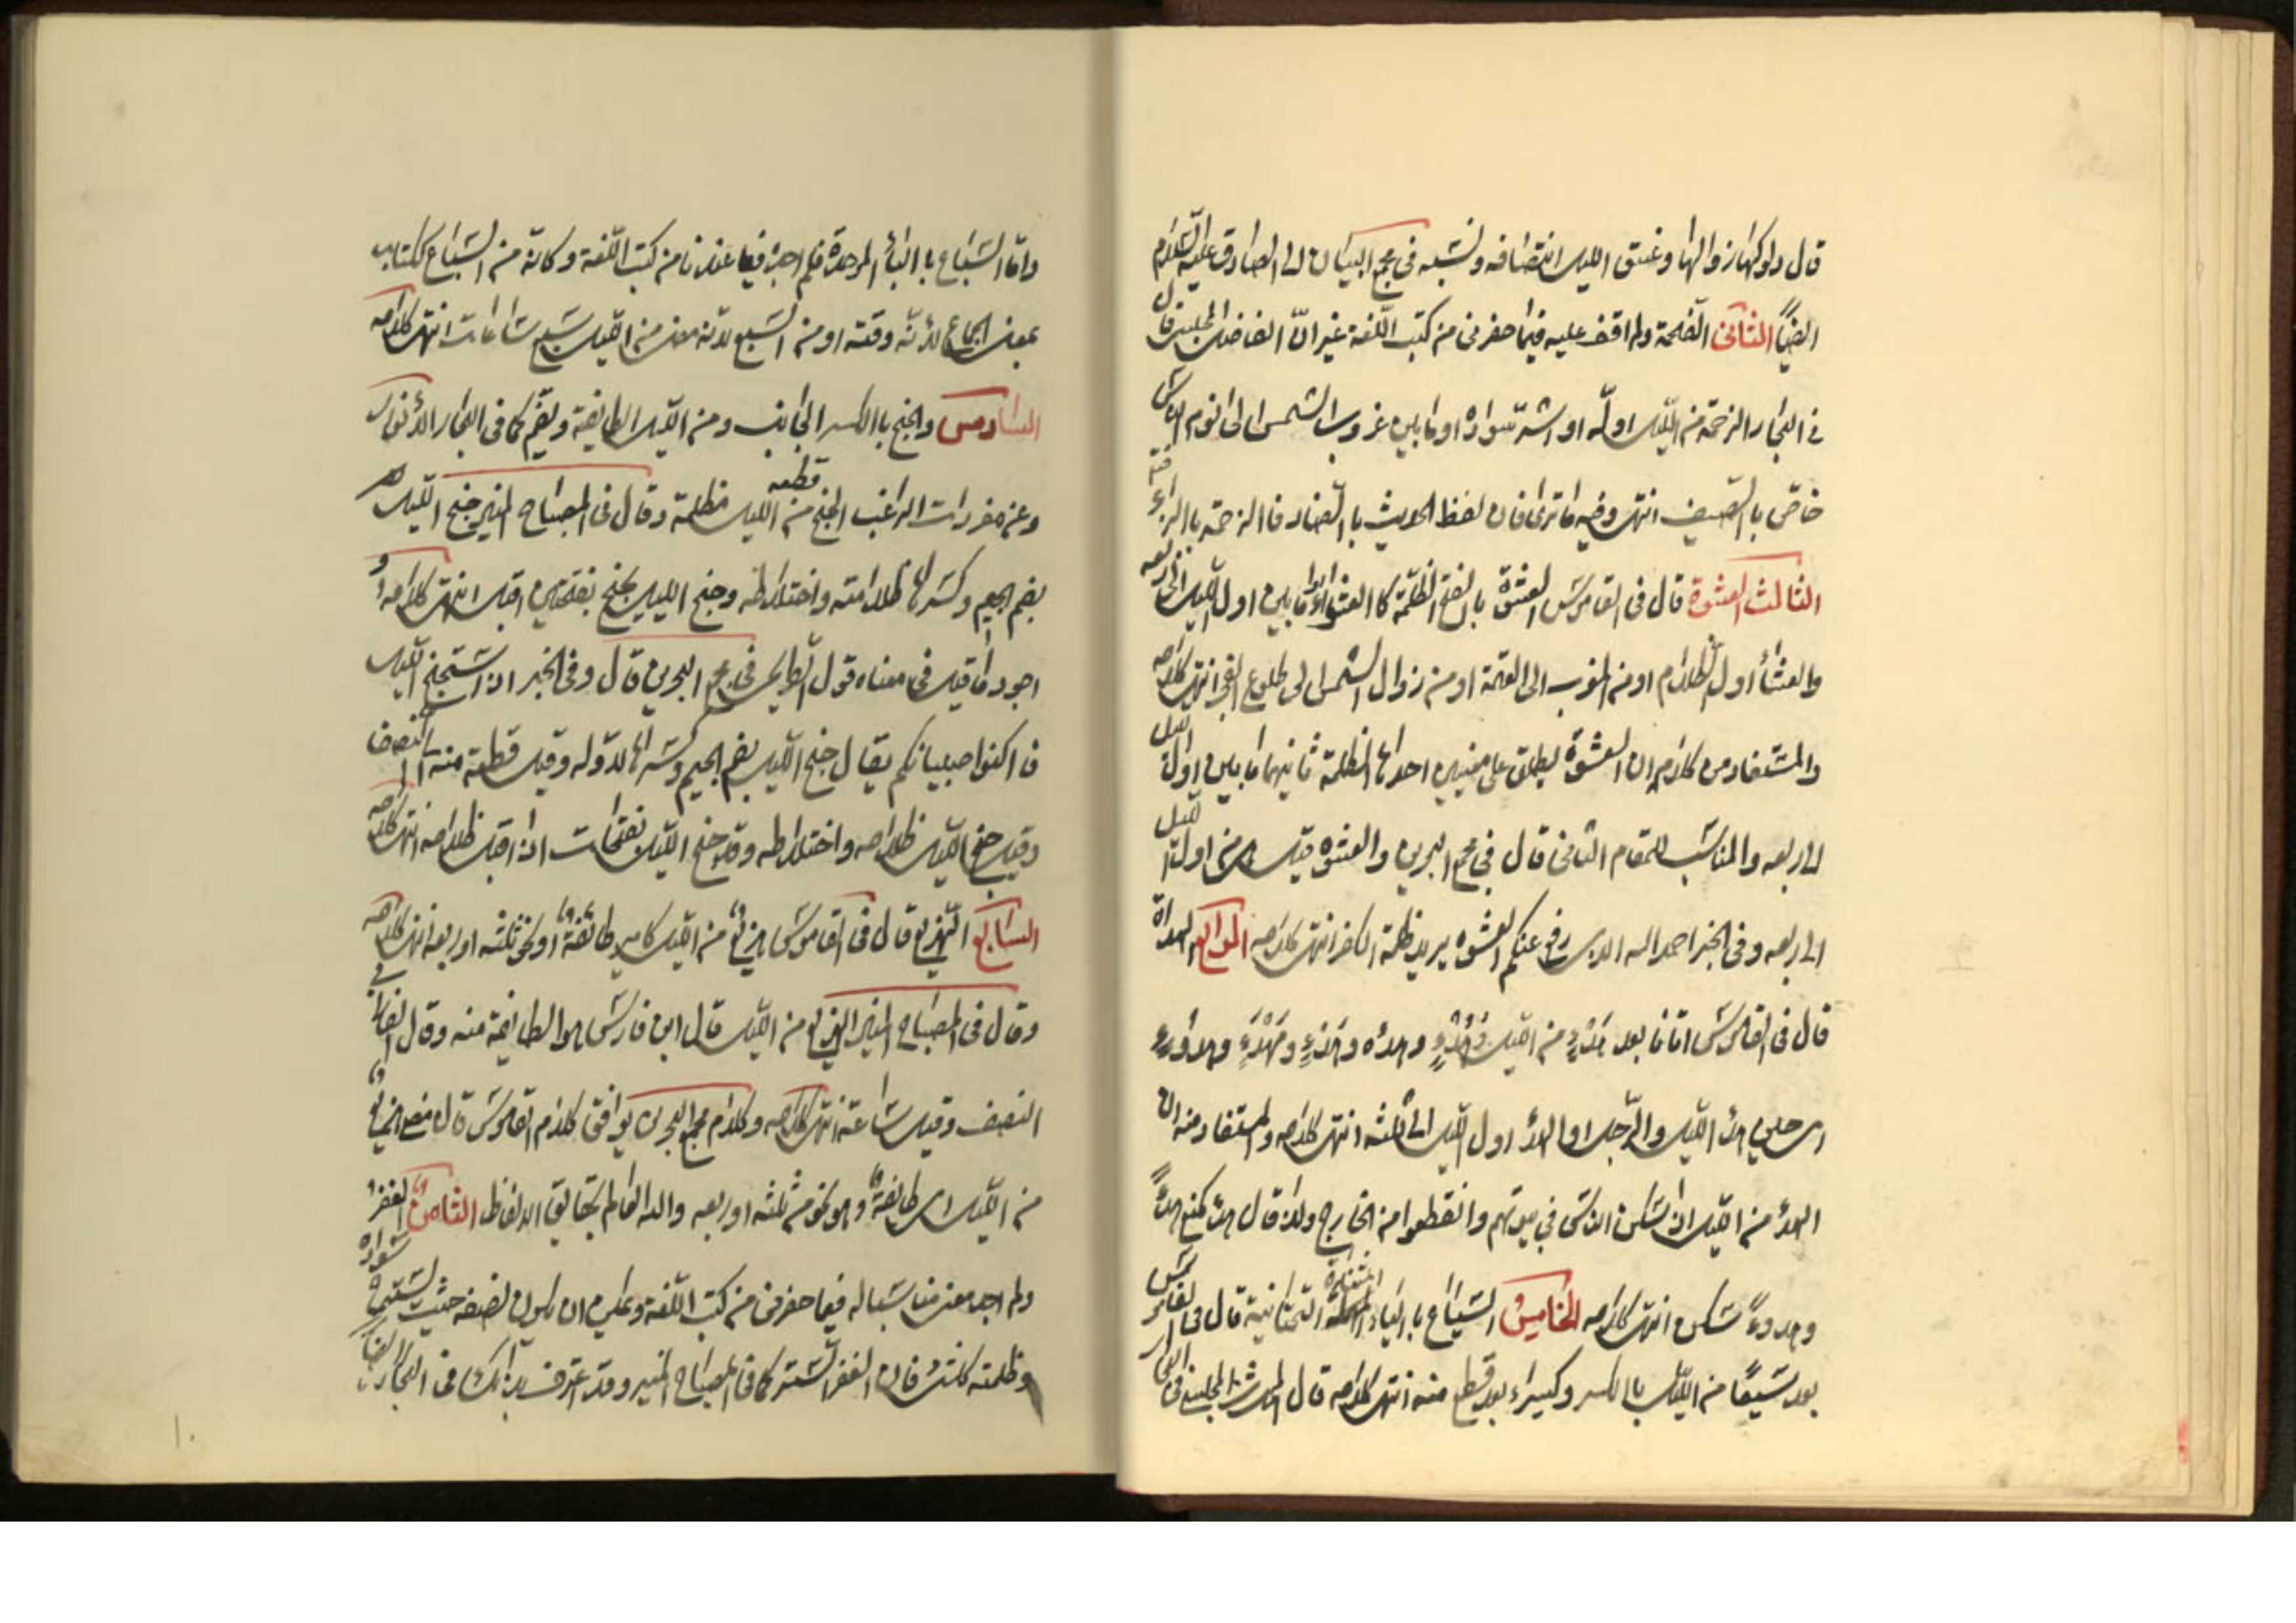 قال دلوكها زوالها وغسق الليل انتصافه ونسبه فى مجمع البيان الى الصادق عليه السّلام
ايضاً الثانى الفحمة ولم اقف عليه فيما حضرنى من كتب اللّغة غير انّ الفاضل المجلسى قال
فى البحار الزحمة من اللّيل اوله او اشدّ سواده او ما بين غروب الشمس الى نوم الناس
خاصّ بالصيف انتهى وفيه ما ترى فان لفظ الحديث بالضاد فالزحمة بالراء
الثالث العشوة قال فى القاموس العشوة بالفتح الظّلمة كالعشواء او ما بين اول اللّيل الى ربعه
والعشاء اول الظّلام او من المغرب الى العتمة او من زوال الشّمس الى طلوع الفجر انتهى كلامه
والمستفاد من كلامه ان العشوة يطلق على معنيين احدها الظلمة ثانيهما ما بين اول الليل
الى ربعه والمناسب للمقام الثانى قال فى مجمع البحرين والعشوة قيل هى من اول الليل
الى ربعه وفى الخبر احمد الله الذى رفع عنكم العشوه يريد ظلمة الكفر انتهى كلامه الرابع الهداة
قال فى القاموس اتانا بعد هدء من اللّيل وهدء وهدءه ومهدء وهدوء
اى حين هدأ اللّيل والرّجل او الهدء اول اللّيل الى ثلثه انتهى كلامه والمستفاد منه ان
الهدء من اللّيل اذا سكن الناس فى بيوتهم وانقطعوا من الخارج ولذا قال هدأ كمنع هدءاً
وهدوءً سكن انتهى كلامه الخامس السّياع بالياء المثناة التحتانية قال فى القاموس
بعد سَيعًا من اللّيل بالكسر وكسيراء بعد قطع منه انتهى كلامه قال المجلسى فى البحار
وامّا السّباع بالبائ الموحدة فلم اجده فيما عندنا من كتب اللّغة وكانّه من السّباع ككتاب
بمعنى الجماع لانّه وقته او من السّبع لانّه معنى من اللّيل سبع ساعات انتهى كلامه
السادس والجنح بالكسر الجانب ومن اللّيل الطايفة ويضمّ كما فى البحار الانوار
وعن مفردات الراغب الجنح قطعه من اللّيل مظلمة وقال فى المصباح المنير جنح اللّيل
بضم الجيم وكسرها ظلامته واختلاطه وجنح الليل يجنح بفتحتين اقبل انتهى كلامه و
اجود ما قيل فى معناه قول الطريحى فى مجمع البحرين قال وفى الخبر اذا استجنح اللّيل
فاكفوا صبيانكم يقال جنح اللّيل بضم الجيم وكسرها لاوله وقيل قطعة منه الى النصف
وقيل جنح اللّيل ظلامه واختلاطه وقد جنح اللّيل بفتحات اذا اقبل ظلامه انتهى كلامه
السابع الهزيع قال فى القاموس هزيع من اللّيل كامير طائفة او نحو ثلثه او ربعه انتهى كلامه
وقال فى المصباح المنير الهزيع من اللّيل قال ابن فارس هو الطايفة منه وقال الفارابى
النصف وقيل ساعة انتهى كلامه وكلام مجمع البحرين يوافق كلام القاموس قال مضى هزيع
من اللّيل اى طائفة وهو نحو من ثلثه او ربعه والله العالم بحقايق الالفاظ الثامن الغفر
ولم اجد معنى مناسبا له فيما حضرنى من كتب اللّغة ويمكن ان يكون نصفه حيث يستتم سواده
وظلمته كلّ شئ فان الغفر السّتر كما فى المصباح المنير وقد اعترف بذلك فى البحار ايضا